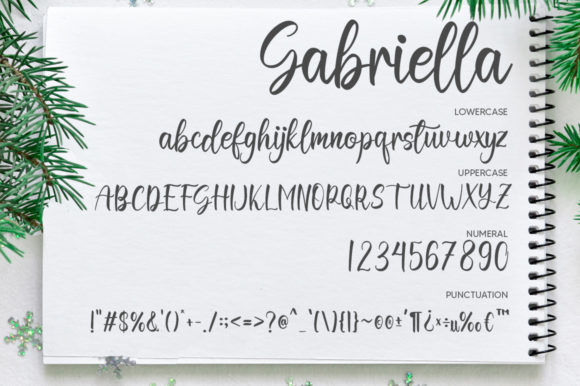 Gabriella
LOWERCASE
abcdefghijklmnopqrstuvwxyz
UPPERCASE
ABCDEFGHIJKLMNOPQRSTUVWXYZ
NUMERAL
1234567890
PUNCTUATION
!"#$%&'()*+-./:;<=>?@^_`(\){|}~©®±´¶¿×÷µ‰€™